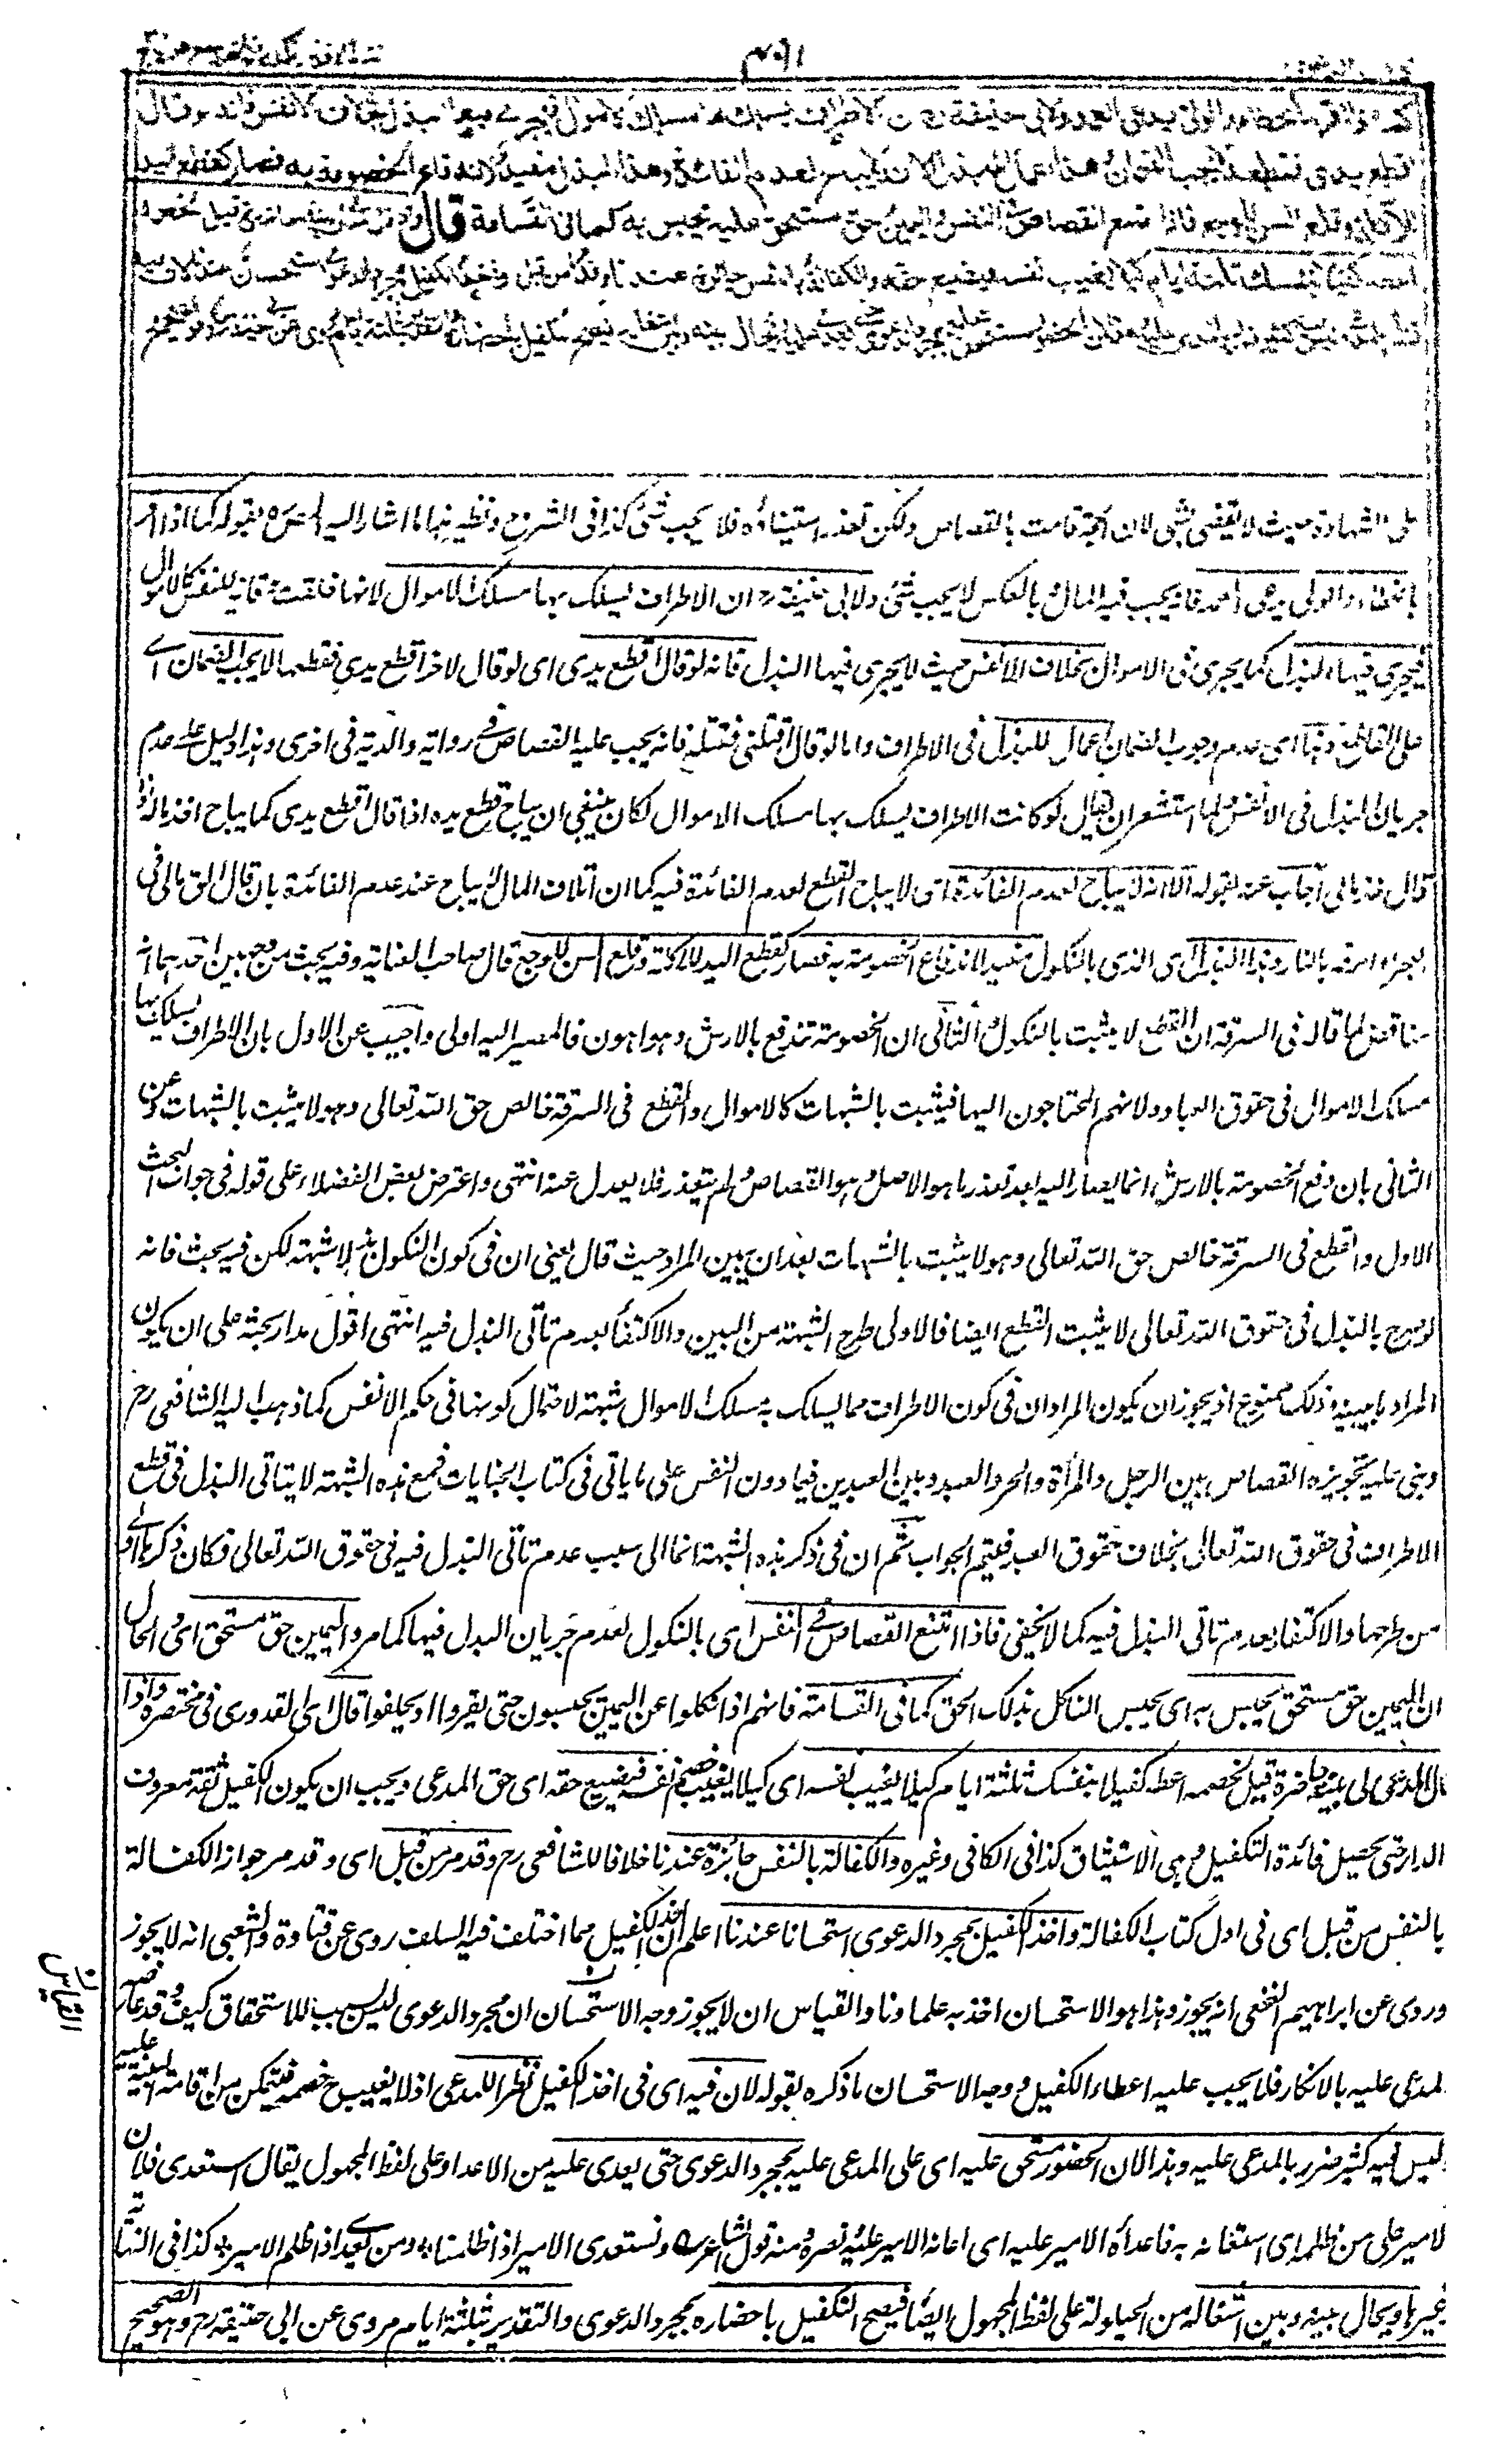 كما اذا اقر بالخطاء والولي يدعي العمد ولابي حنيفة رح ان الاطراف يسلك بها مسلك الاموال فيجري فيها البذل بخلاف الانفس فانه لو قال
اقطع يدي فقطعه لا يجب الضمان وهذا اعمال للبذل الا انه لا يباح لعدم الفائدة وهذا البذل مفيد لاندفاع الخصومة به فصار كقطع اليد
للآكلة وقلع السن للوجع فاذا امتنع القصاص في النفس واليمين حق مستحق عليه يحبس به كما في القسامة قال واذا قال المدعي لي بينة حاضرة قيل لخصمه
اعطه كفيلا بنفسك ثلثة ايام كيلا يغيب نفسه فيضيع حقه والكفالة بالنفس جائزة عندنا وقد مر من قبل واخذ الكفيل بمجرد الدعوى استحسان عندنا لان فيه
نظرا للمدعي وليس فيه كثير ضرر بالمدعى عليه وهذا لان الحضور مستحق عليه بمجرد الدعوى حتى يعدى عليه ويحال بينه وبين اشغاله فيصح التكفيل باحضاره والتقدير بثلثة ايام مروي عن ابي حنيفة رح وهو الصحيح
على الشهادة حيث لا يقضي بشئ لان الحجة قامت بالقصاص ولكن تعذر استيفاؤه فلا يجب شئ كذا في الشروح ونظير هذا ما اشار اليه المص ره بقوله كما اذا اقر
بالخطاء والولي يدعي العمد فانه يجب فيه المال وبالعكس لا يجب شئ ولابي حنيفة رح ان الاطراف يسلك بها مسلك الاموال لانها خلقت وقاية للنفس كالاموال
فيجري فيها البذل كما يجري في الاموال بخلاف الانفس حيث لا يجري فيها البذل فانه لو قال اقطع يدي اي لو قال لاخر اقطع يدي فقطعها لا يجب الضمان اي
على القاطع وهذا اي عدم وجوب الضمان اعمال للبذل في الاطراف واما لو قال اقتلني فقتله فانه يجب عليه القصاص في رواية والدية في اخرى وهذا دليل على عدم
جريان البذل في الانفس ولما استشعر ان يقال لو كانت الاطراف يسلك بها مسلك الاموال لكان ينبغي ان يباح قطع يده اذا قال اقطع يدي كما يباح اخذ ماله اذا
قال خذ مالي اجاب عنه بقوله الا انه لا يباح لعدم الفائدة اي لا يباح القطع لعدم الفائدة فيه كما ان اتلاف المال لا يباح عند عدم الفائدة بان قال الق مالي في
البحر او احرقه بالنار وهذا البذل اي الذي بالنكول مفيد لاندفاع الخصومة به فصار كقطع اليد للآكلة وقلع السن للوجع قال صاحب العناية وفيه بحث من وجهين احدهما انه
مناقض لما قال في السرقة ان القطع لا يثبت بالنكول والثاني ان الخصومة تندفع بالارش وهو اهون فالمصير اليه اولى واجيب عن الاول بان الاطراف يسلك بها
مسلك الاموال في حقوق العباد ولانهم المحتاجون اليها فيثبت بالشبهات كالاموال والقطع في السرقة خالص حق الله تعالى وهو لا يثبت بالشبهات وعن
الثاني بان دفع الخصومة بالارش انما يصار اليه بعد تعذر ما هو الاصل وهو القصاص ولم يتعذر فلا يعدل عنه انتهى واعترض بعض الفضلاء على قوله في جواب البحث
الاول والقطع في السرقة خالص حق الله تعالى وهو لا يثبت بالشبهات بعد ان يبين المراد حيث قال يعني ان في كون النكول بذلا شبهة لكن فيه بحث فانه
لو صرح بالبذل في حقوق الله تعالى لا يثبت القطع ايضا فالاولى طرح الشبهة من البين والاكتفاء بعدم تأتي البذل فيه انتهى اقول مدار بحثه على ان يكون
المراد ما بينه وذلك ممنوع اذ يجوز ان يكون المراد ان في كون الاطراف مما يسلك به مسلك الاموال شبهة لاحتمال كونها في حكم الانفس كما ذهب اليه الشافعي رح
وبنى عليه تجويزه القصاص بين الرجل والمرأة والحر والعبد وبين العبدين فيما دون النفس على ما ياتي في كتاب الجنايات فمع هذه الشبهة لا يتاتى البذل في قطع
الاطراف في حقوق الله تعالى بخلاف حقوق العبد فيتم الجواب ثم ان في ذكر هذه الشبهة ايماء الى سبب عدم تاتي البذل فيه في حقوق الله تعالى فكان ذكرها اولى
من طرحها والاكتفاء بعدم تاتي البذل فيه كما لا يخفى فاذا امتنع القصاص في النفس اي بالنكول لعدم جريان البذل فيها كما مر واليمين حق مستحق اي والحال
ان اليمين حق مستحق يحبس به اي يحبس الناكل بذلك الحق كما في القسامة فانهم اذا نكلوا عن اليمين يحبسون حتى يقروا او يحلفوا قال اي القدوري في مختصره واذا
قال المدعي لي بينة حاضرة قيل لخصمه اعطه كفيلا بنفسك ثلثة ايام كيلا يغيب نفسه اي كيلا يغيب خصمه نفسه فيضيع حقه اي حق المدعي ويجب ان يكون الكفيل ثقة معروف
الدار حتى يحصل فائدة التكفيل وهي الاستيثاق كذا في الكافي وغيره والكفالة بالنفس جائزة عندنا خلافا للشافعي رح وقد مر من قبل اي وقد مر جواز الكفالة
بالنفس من قبل اي في اول كتاب الكفالة واخذ الكفيل بمجرد الدعوى استحسانا عندنا اعلم ان اخذ الكفيل مما اختلف فيه السلف روي عن قتادة والشعبي انه لا يجوز
وروي عن ابراهيم النخعي انه يجوز وهذا هو الاستحسان اخذ به علماؤنا والقياس ان لا يجوز وجه الاستحسان ان مجرد الدعوى ليس بسبب للاستحقاق كيف وقد عارضه
القياس ن
المدعى عليه بالانكار فلا يجب عليه اعطاء الكفيل ووجه الاستحسان ما ذكره بقوله لان فيه اي في اخذ الكفيل نظرا للمدعي اذ لا يغيب ح خصمه فيتمكن من اقامة البينة عليه
وليس فيه كثير ضرر بالمدعى عليه وهذا لان الحضور مستحق عليه اي على المدعى عليه بمجرد الدعوى حتى يعدى عليه من الاعداء على لفظ المجهول يقال استعدى فلان
الامير على من ظلمه اي استغاث به فاعداه الامير عليه اي اعانه الامير عليه ونصره ومنه قول الشاعر ونستعدي الامير اذا ظلمنا ٭ ومن يعدي اذا ظلم الامير ٭ كذا في النهاية
وغيرها ويحال بينه وبين اشغاله من الحيلولة على لفظ المجهول ايضا فيصح التكفيل باحضاره بمجرد الدعوى والتقدير بثلثة ايام مروي عن ابي حنيفة رح وهو الصحيح